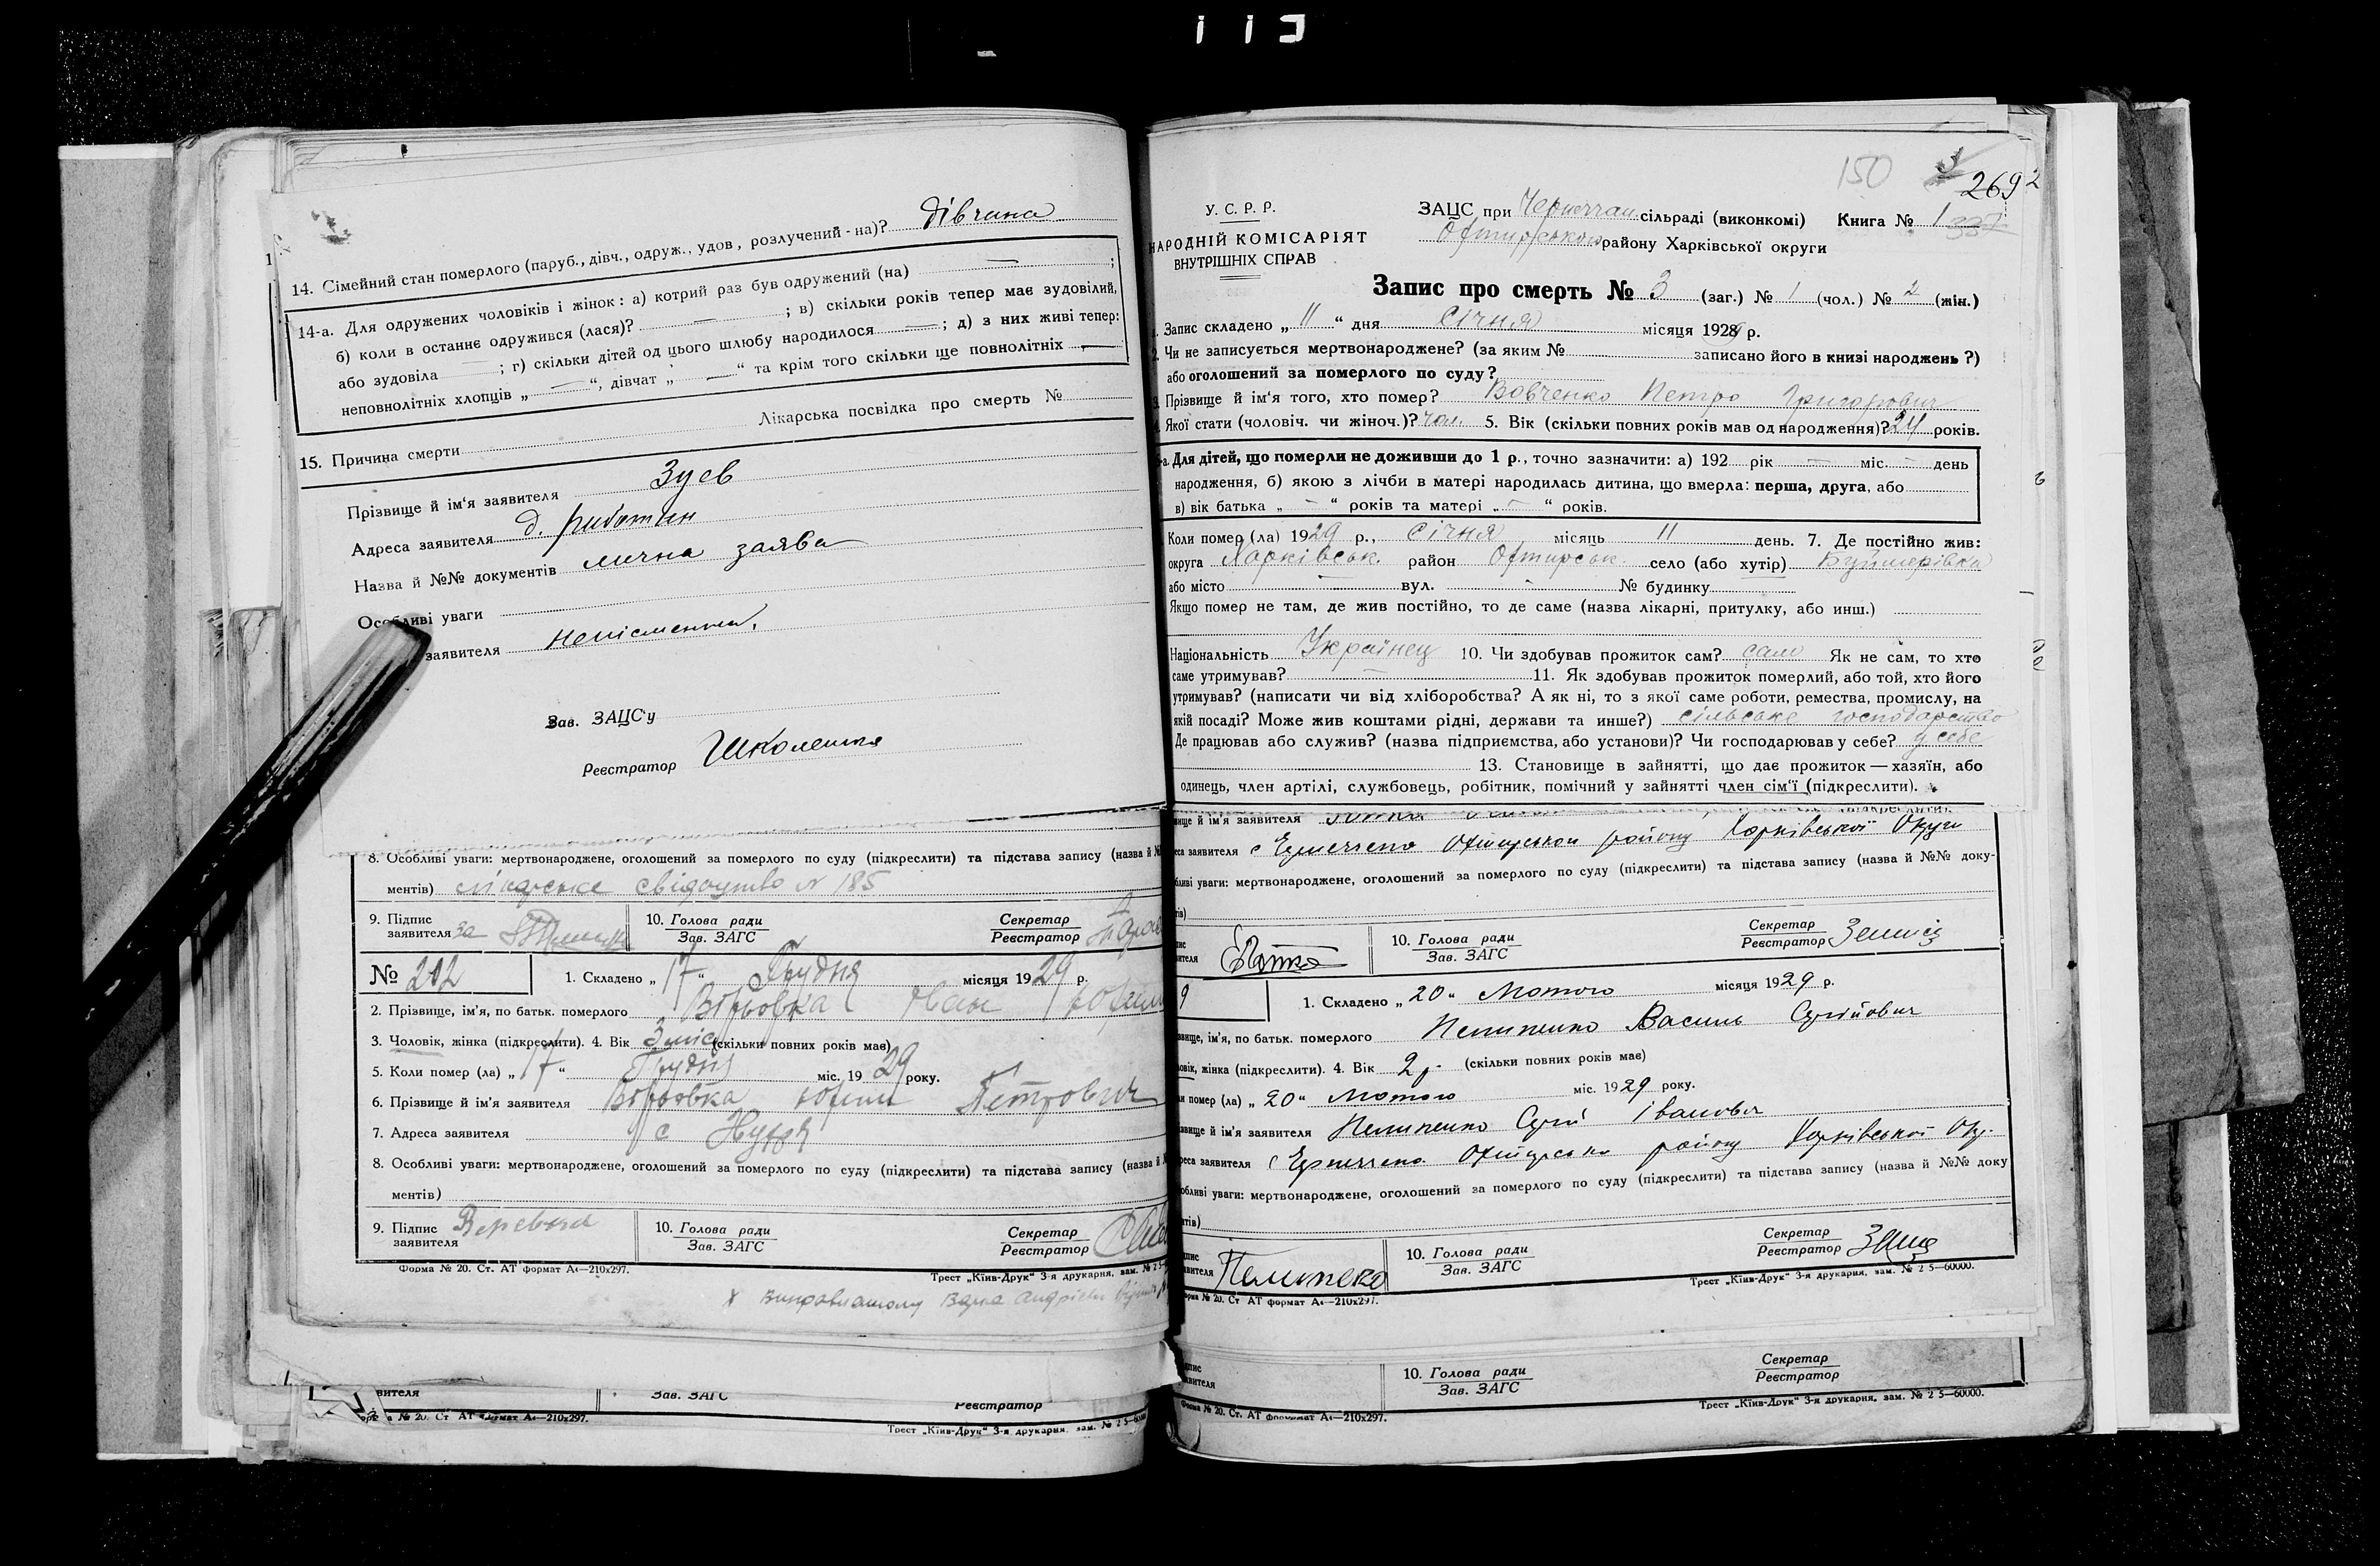 14. Сімейний стан померлого (паруб., дівч., одруж., удов, розлучений-на)? дівчина
14-а. Для одружених чоловіків і жінок: а) котрий раз був одружений (на) — ;
б) коли в останнє одружився (лася)? — ; в) скільки років тепер має зудовілий,
або зудовіла — ; г) скільки дітей од цього шлюбу народилося — ; д) з них живі тепер:
неповнолітніх хлопців „ — “, дівчат „ — “ та крім того скільки ще повнолітніх —
15. Причина смерти Лікарська посвідка про смерть №
Прізвище й ім'я заявителя Зуев
Адреса заявителя
Назва й №№ документів лична заява
Особливі уваги
заявителя неписьменна,
Зав. ЗАЦС'у
Реєстратор
8. Особливі уваги: мертвонароджене, оголошений за померлого по суду (підкреслити) та підстава запису (назва й №
ментів) лікарське свідоцтво № 185
9. Підпис
заявителя за
10. Голова ради
Зав. ЗАГС
Секретар
Реєстратор
№ 202
1. Складено „17“ Грудня місяця 1929 р.
2. Прізвище, ім'я, по батьк. померлого Вірьовка Іван
3. Чоловік, жінка (підкреслити). 4. Вік 3 міс (скільки повних років має)
5. Коли помер (ла) „17“ Грудня міс. 1929 року.
6. Прізвище й ім'я заявителя Вірьовка Юхим Петрович
7. Адреса заявителя с
8. Особливі уваги: мертвонароджене, оголошений за померлого по суду (підкреслити) та підстава запису (назва й
ментів)
9. Підпис
заявителя
10. Голова ради
Зав. ЗАГС
Секретар
Реєстратор
Форма № 20. Ст. АТ формат А4—210х297.
Трест „Київ-Друк“ 3-я друкарня, зам. № 2 5
вителя
Зав. ЗАГС
Реєстратор
№ 20. Ст АТ формат А4—210х297.
Трест „Київ-Друк“ 3-я друкарня, зам. № 2 5—60000
150
269
У. С. Р. Р.
НАРОДНІЙ КОМІСАРІЯТ
ВНУТРІШНІХ СПРАВ
ЗАЦС при Чернеччан. сільраді (виконкомі) Книга № 1
Охтирського району Харківської округи
Запис про смерть № 3 (заг.) № 1 (чол.) № 2 (жін.)
1. Запис складено „11“ дня Січня місяця 1929 р.
2. Чи не записується мертвонароджене? (за яким № записано його в книзі народжень ?)
або оголошений за померлого по суду?
3. Прізвище й ім'я того, хто помер? Вовченко Петро Григорович
Якої стати (чоловіч. чи жіноч.)? чол. 5. Вік (скільки повних років мав од народження)? 24 років.
Для дітей, що померли не доживши до 1 р., точно зазначити: а) 192 рік — міс. — день
народження, б) якою з лічби в матері народилась дитина, що вмерла: перша, друга, або
в) вік батька „ — “ років та матері „ — “ років.
Коли помер (ла) 1929 р., Січня місяць 11 день. 7. Де постійно жив:
округа Харківськ. район Охтирськ. село (або хутір) Буймерівка
або місто — вул. — № будинку
Якщо помер не там, де жив постійно, то де саме (назва лікарні, притулку, або инш.)
Національність Українец 10. Чи здобував прожиток сам? сам Як не сам, то хто
саме утримував? — 11. Як здобував прожиток померлий, або той, хто його
утримував? (написати чи від хліборобства? А як ні, то з якої саме роботи, ремества, промислу, на
якій посаді? Може жив коштами рідні, держави та инше?) сільське господарство
Де працював або служив? (назва підприємства, або установи)? Чи господарював у себе? у себе
13. Становище в зайнятті, що дає прожиток — хазяїн, або
одинець, член артілі, службовець, робітник, помічний у зайнятті член сім'ї (підкреслити).
вище й ім'я заявителя
заявителя с Охтирського району Харківської Округи
уваги: мертвонароджене, оголошений за померлого по суду (підкреслити) та підстава запису (назва й №№ доку-
10. Голова ради
Зав. ЗАГС
Секретар
Реєстратор
9
1. Складено „20“ Лютого місяця 1929 р.
ім'я, по батьк. померлого Пелипенко Василь Сергійович
жінка (підкреслити). 4. Вік 2 р. (скільки повних років має)
помер (ла) „20“ Лютого міс. 1929 року.
й ім'я заявителя Пелипенко Сергій Іванович
заявителя с Охтирського району Харківської Окр.
уваги: мертвонароджене, оголошений за померлого по суду (підкреслити) та підстава запису (назва й №№ доку
10. Голова ради
Зав. ЗАГС
Секретар
Реєстратор
№ 20. Ст АТ формат А4—210х297.
Трест „Київ-Друк“ 3-я друкарня, зам. № 2 5—60000.
10. Голова ради
Зав. ЗАГС
Секретар
Реєстратор
Форма № 20. Ст. АТ формат А4—210х297.
Трест „Київ-Друк“ 3-я друкарня, зам. № 2 5—60000.